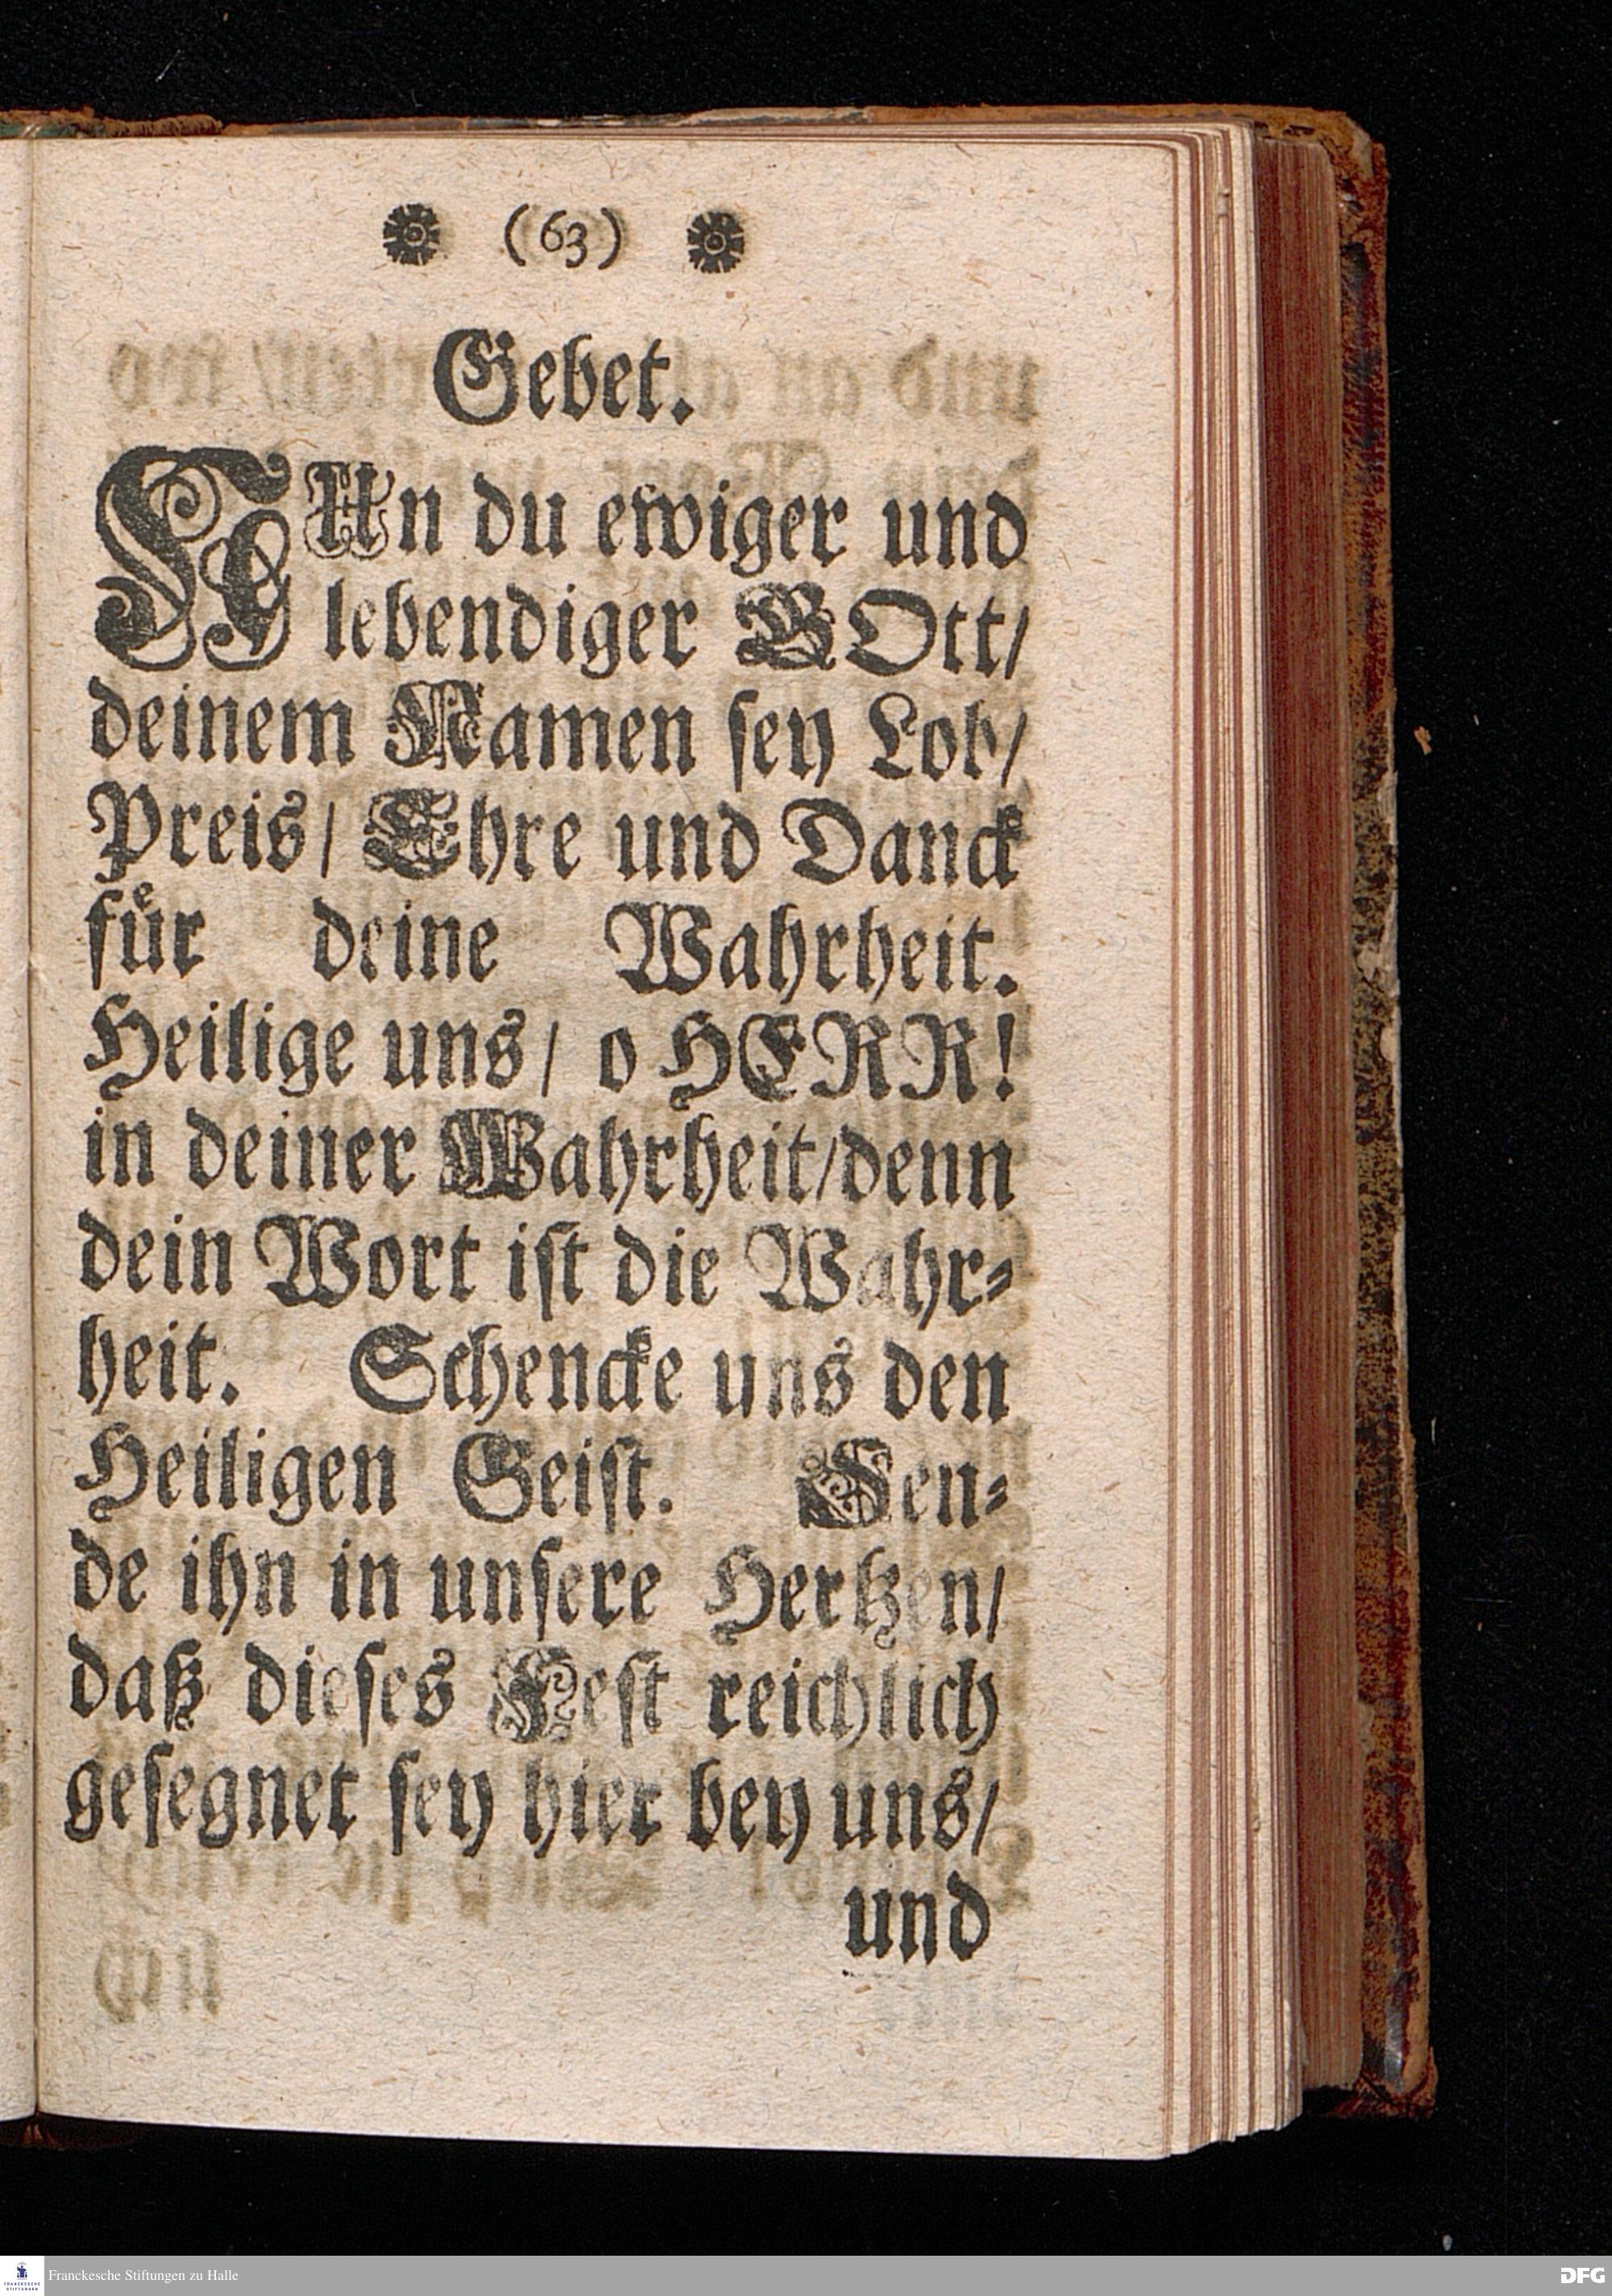 (63)
Gebet.
NUn du ewiger und
lebendiger GOtt/
deinem Namen sey Lob/
Preis/ Ehre und Danck
fuͤr deine Wahrheit.
Heilige uns/ o HERR!
in deiner Wahrheit/denn
dein Wort ist die Wahr-
heit. Schencke uns den
Heiligen Geist. Sen-
de ihn in unsere Hertzen/
daß dieses Fest reichlich
gesegnet sey hier bey uns/
und
Franckesche Stiftungen zu Halle
FRANCKESCHE
STIFTUNGEN
DFG